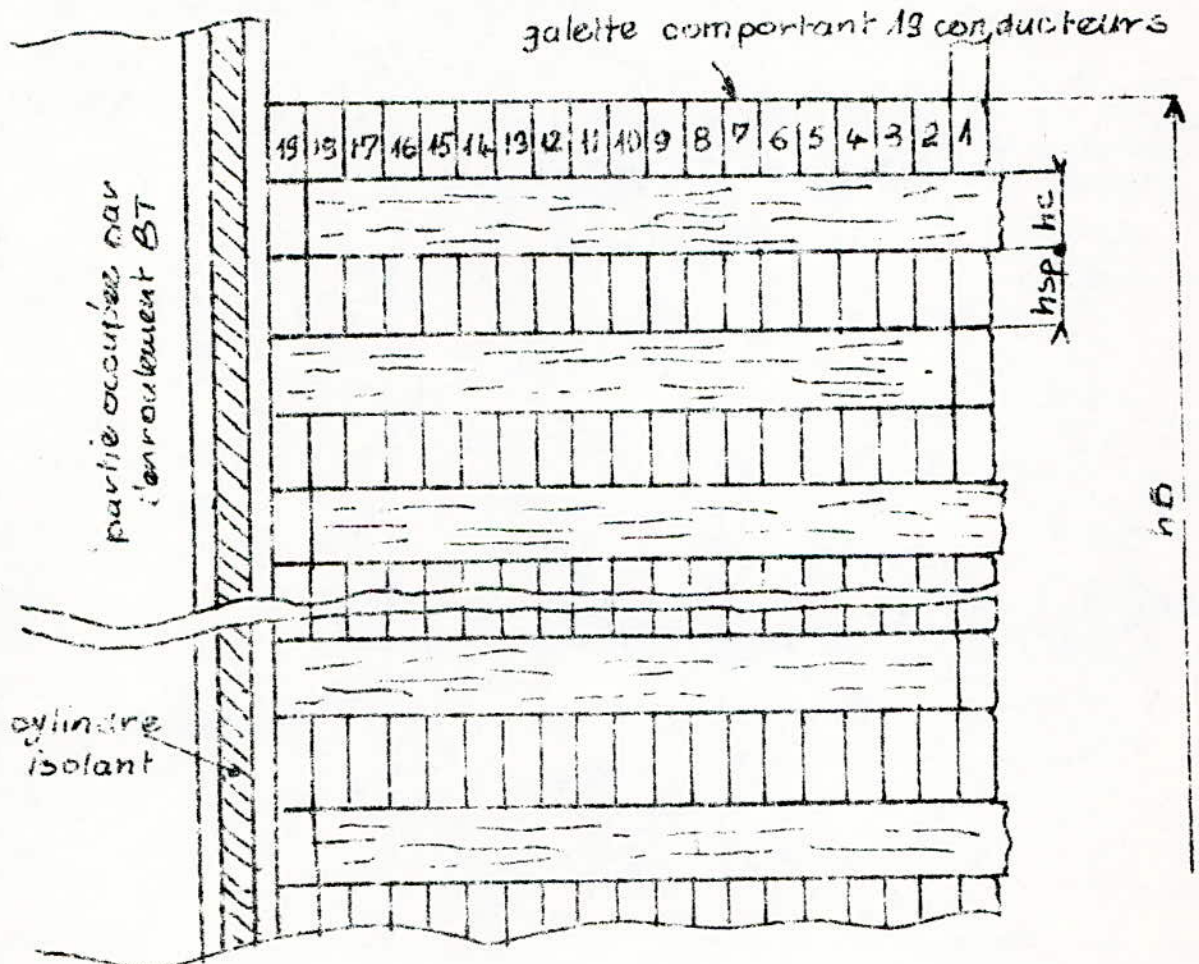 galette comportant 19 conducteurs
19 18 17 16 15 14 13 12 11 10 9 8 7 6 5 4 3 2 1
hc
hsp
partie occupée par
l'enroulement BT
hB
cylindre
isolant